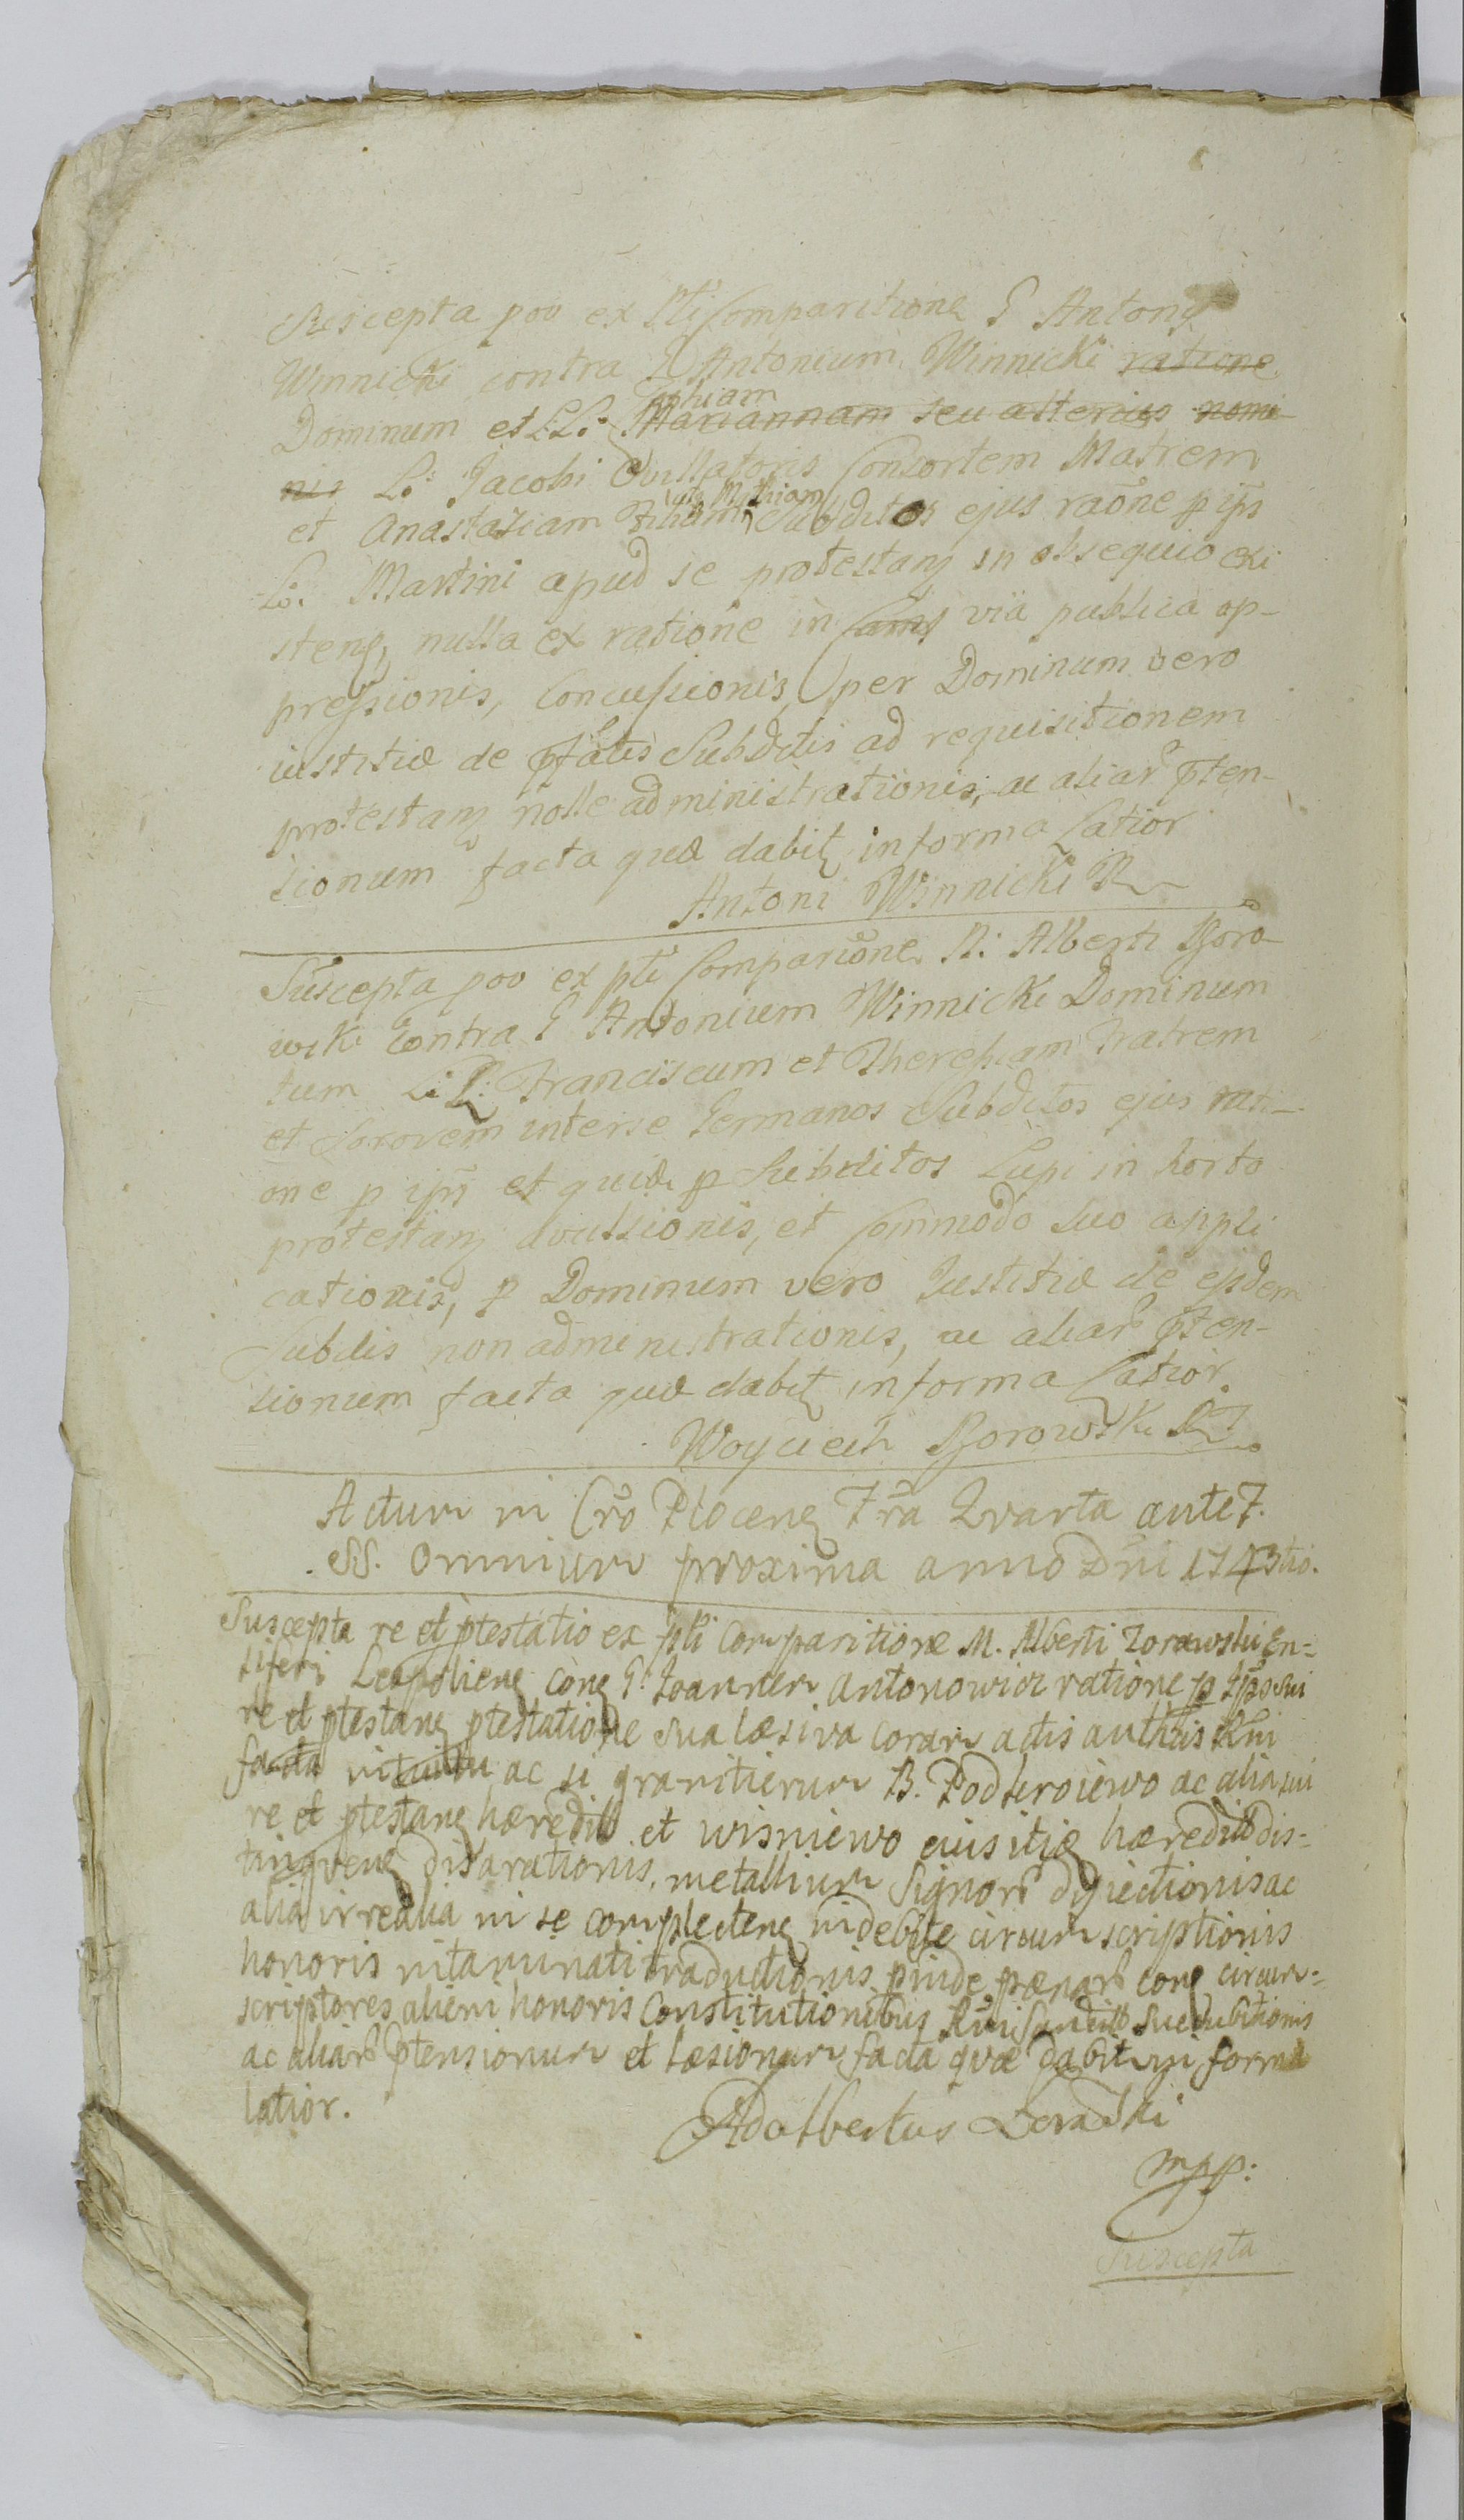 Suscepta pōō ex Pti Comparitione G Antony
Winnicki contra G Antonium Winnicki ratione
Dominum et LL: Sophiam Mariannam seu alterius nomi-
nis L: Jacobi Consortem Matrem
et Anastasiam Filiam Subditos ejus raōne p ips
L: Martini apud se protestanŧ in obsequio exi
stenŧ, nulla ex ratione in via publica op-
pressionis, Concussionis, per Dominum vero
iustitiæ de Subditis ad requisitionem
protestanŧ nolle administrationis, ac aliar pten-
sionum facta quæ dabit in forma latior
Antoni Winnicki
Suscepta pōō ex pti Comparōne N: Alberti
contra G Antonium Winnicki Dominum
tum L:L: Franciscum et Theresiam Fratrem
et Sororem inter se Germanos Subditos ejus rati-
one p ips et quid p Subditos Lupi in horto
protestanŧ avulsionis, et Commodo suo appli
cationis, p Dominum vero Justitiæ de ejsdem
Subdis non administrationis, ac aliar pten-
sionum facta quæ dabit in forma latior
Woyciech
Actum in Cro Plocenŧ Fra Qvarta ante F.
SS. Omnium proxima anno Dni 1743tio.
Suscepta re et ptestatio ex pti Comparitione M. Alberti En-
siferi cōnŧ G. Joannem Antonowicz ratione p Ips sui
re et ptestanŧ ptestatione sua læsiva coram actis authcis Rni
facta ac si granitierum B. ac alia sui
re et ptestanŧ hæredit et Wisniewo eius itiæ hæredit dis-
tingvenŧ disarationis, metallium Signor dijectionis ac
alia irrealia in se complectenŧ indebite circumscriptionis
honoris intaminati traductionis, pinde pænar conŧ circum-
scriptores alieni honoris Constitutionibus Rni succubitionis
ac aliar ptensionum et læsionum facta qvæ dabitur in forma
latior.
Adalbertus
mpp:
Suscepta